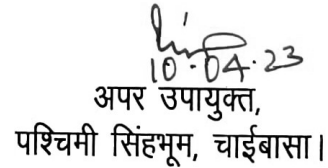 10.04.23
अपर उपायुक्त,
पश्चिमी सिंहभूम, चाईबासा।